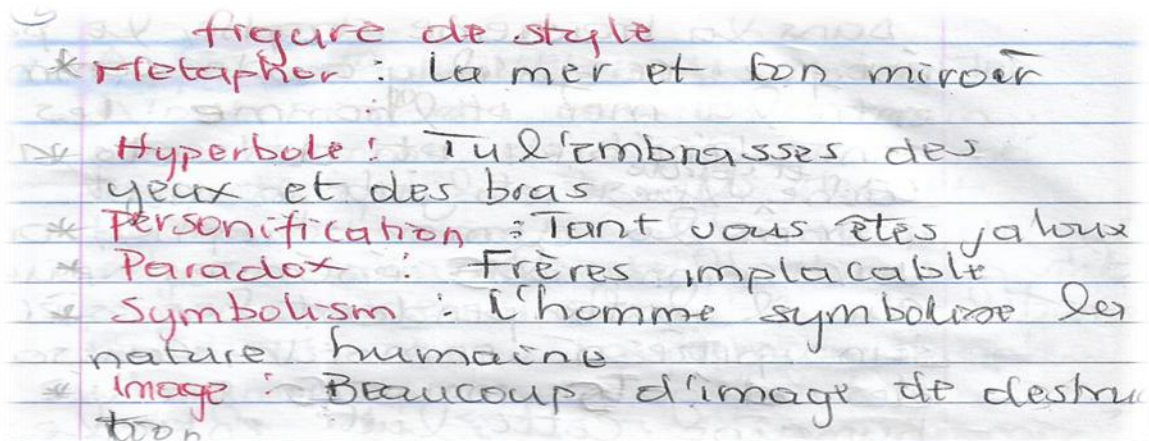 figure de style
* Metapher : La mer et ton miroir
* Hyperbole : Tu l'embrasses des
yeux et des bras
* Personification : Tant vous êtes jaloux
* Paradox : Frères implacable
* Symbolism : L'homme symbolise la
nature humaine
* image : Beaucoup d'image de destruc
tion